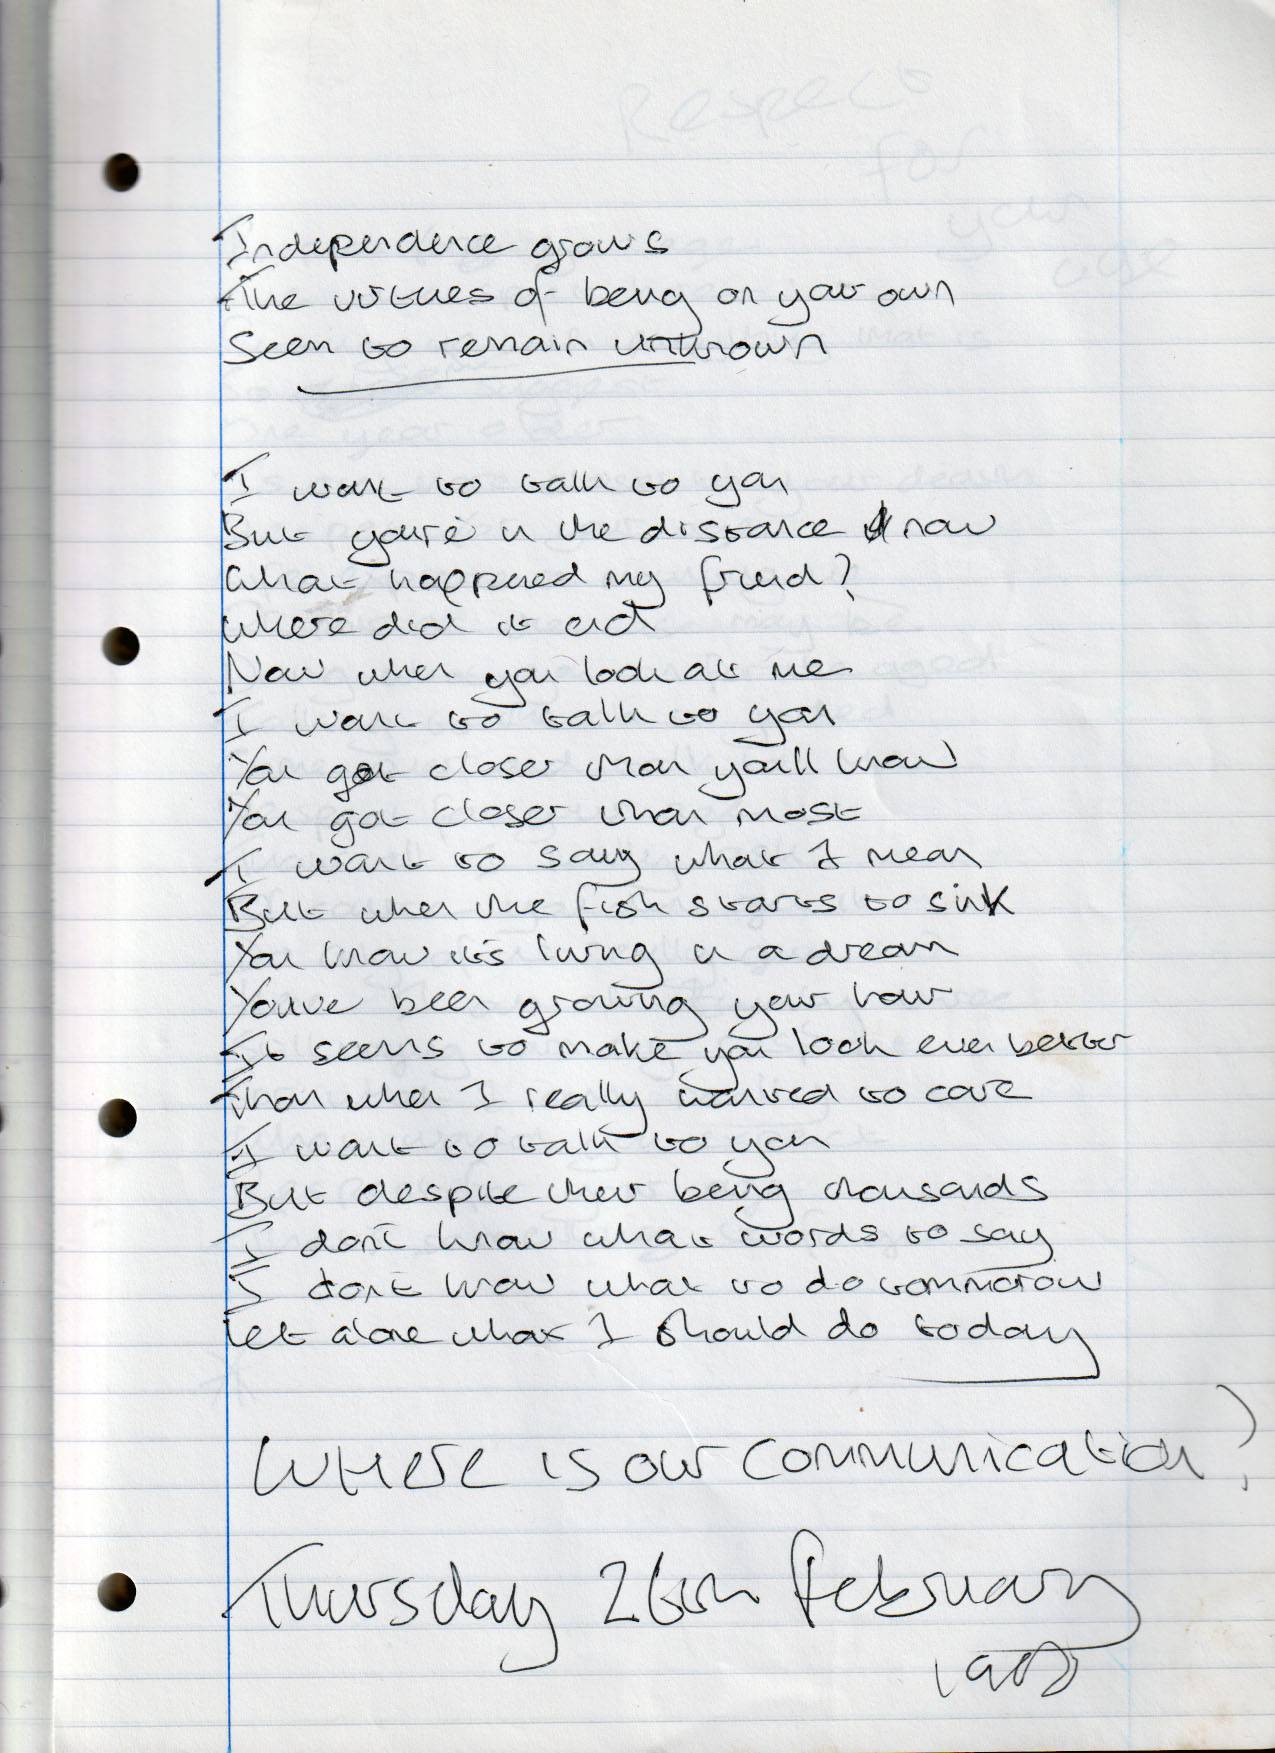 Respect
for
your
age
Independence grows
The virtues of being on your own
Seem to remain unknown
I want to talk to you
But you're in the distance now
What happened my friend?
Where did it end
Now when you look at me
I want to talk to you
You got closer than you'll know
You got closer than most
I want to say what I mean
But when the fish starts to sink
You know it's living in a dream
You've been growing your hair
It seems to make you look even better
Than when I really wanted to care
I want to talk to you
But despite their being thousands
I don't know what words to say
I don't know what to do tommorow
Let alone what I should do today
WHERE is our communication?
Thursday 26th February
1998